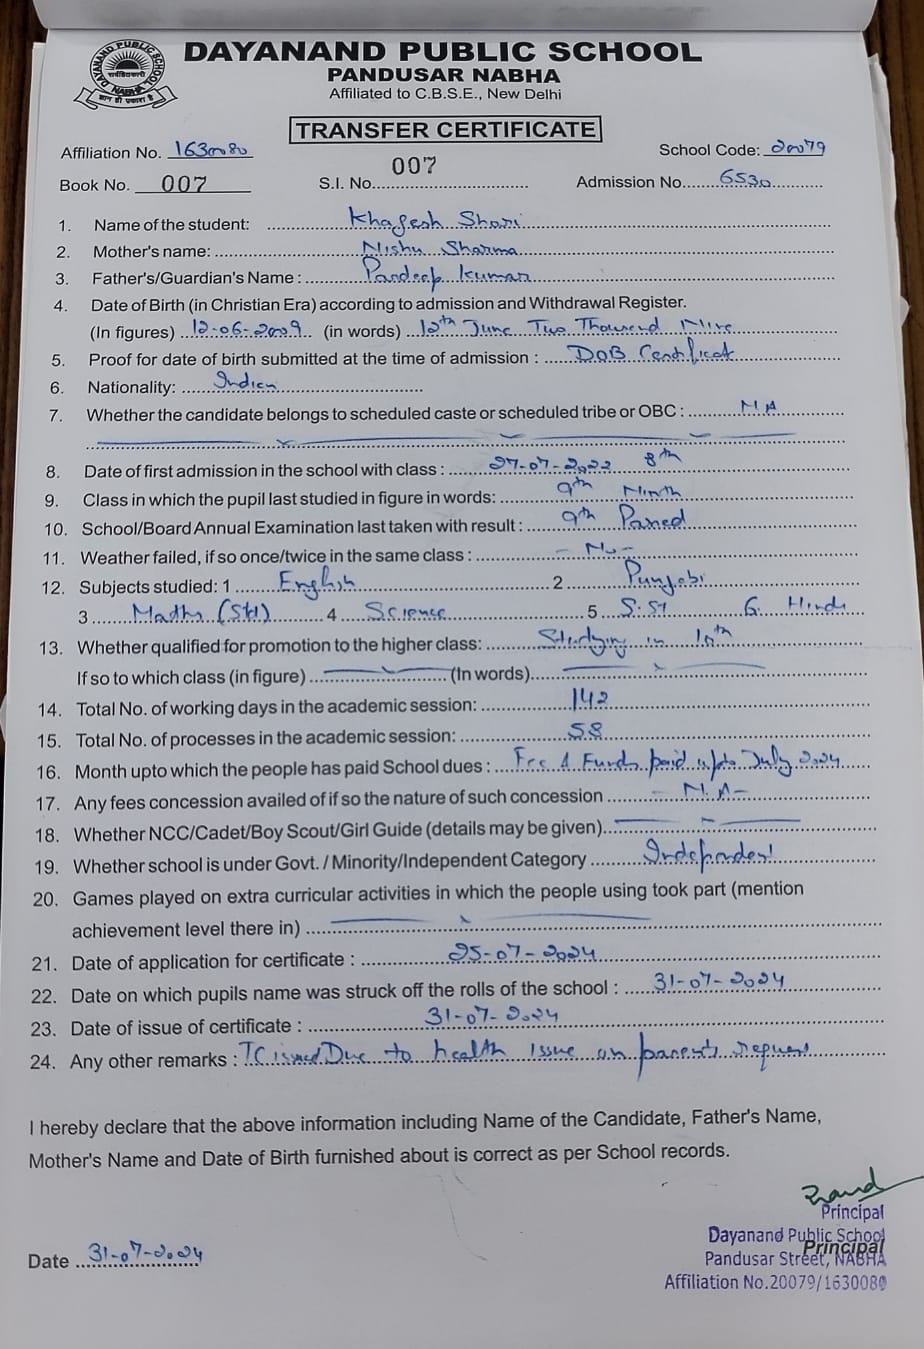 DAYANAND PUBLIC SCHOOL
PANDUSAR NABHA
Affiliated to C.B.S.E., New Delhi
TRANSFER CERTIFICATE
Affiliation No. 1630080 School Code: 20079
Book No. 007 S.I. No. 007 Admission No. 6530
1. Name of the student: Khagesh
2. Mother's name: Nishu Sharma
3. Father's/Guardian's Name : Pardeep Kumar
4. Date of Birth (in Christian Era) according to admission and Withdrawal Register.
(In figures) 12-06-2009 (in words) 12th June Two Thousand Nine
5. Proof for date of birth submitted at the time of admission : DOB Certificat
6. Nationality: Indian
7. Whether the candidate belongs to scheduled caste or scheduled tribe or OBC : N A
8. Date of first admission in the school with class : 27-07-2022 8th
9. Class in which the pupil last studied in figure in words: 9th Ninth
10. School/Board Annual Examination last taken with result : 9th Passed
11. Weather failed, if so once/twice in the same class : - No -
12. Subjects studied: 1 English 2 Punjabi
3 Maths (Std) 4 Science 5 S.St 6. Hindi
13. Whether qualified for promotion to the higher class: Studying in 10th
If so to which class (in figure) (In words)
14. Total No. of working days in the academic session: 142
15. Total No. of processes in the academic session: 58
16. Month upto which the people has paid School dues : Fee & Funds paid upto July 2024
17. Any fees concession availed of if so the nature of such concession - N. A -
18. Whether NCC/Cadet/Boy Scout/Girl Guide (details may be given)
19. Whether school is under Govt. / Minority/Independent Category Independent
20. Games played on extra curricular activities in which the people using took part (mention
achievement level there in)
21. Date of application for certificate : 25-07-2024
22. Date on which pupils name was struck off the rolls of the school : 31-07-2024
23. Date of issue of certificate : 31-07-2024
24. Any other remarks : TC issued Due to health issue on parents request
I hereby declare that the above information including Name of the Candidate, Father's Name,
Mother's Name and Date of Birth furnished about is correct as per School records.
Principal
Dayanand Public School
Principal
Pandusar Street, NABHA
Date 31-07-2024
Affiliation No.20079/1630080